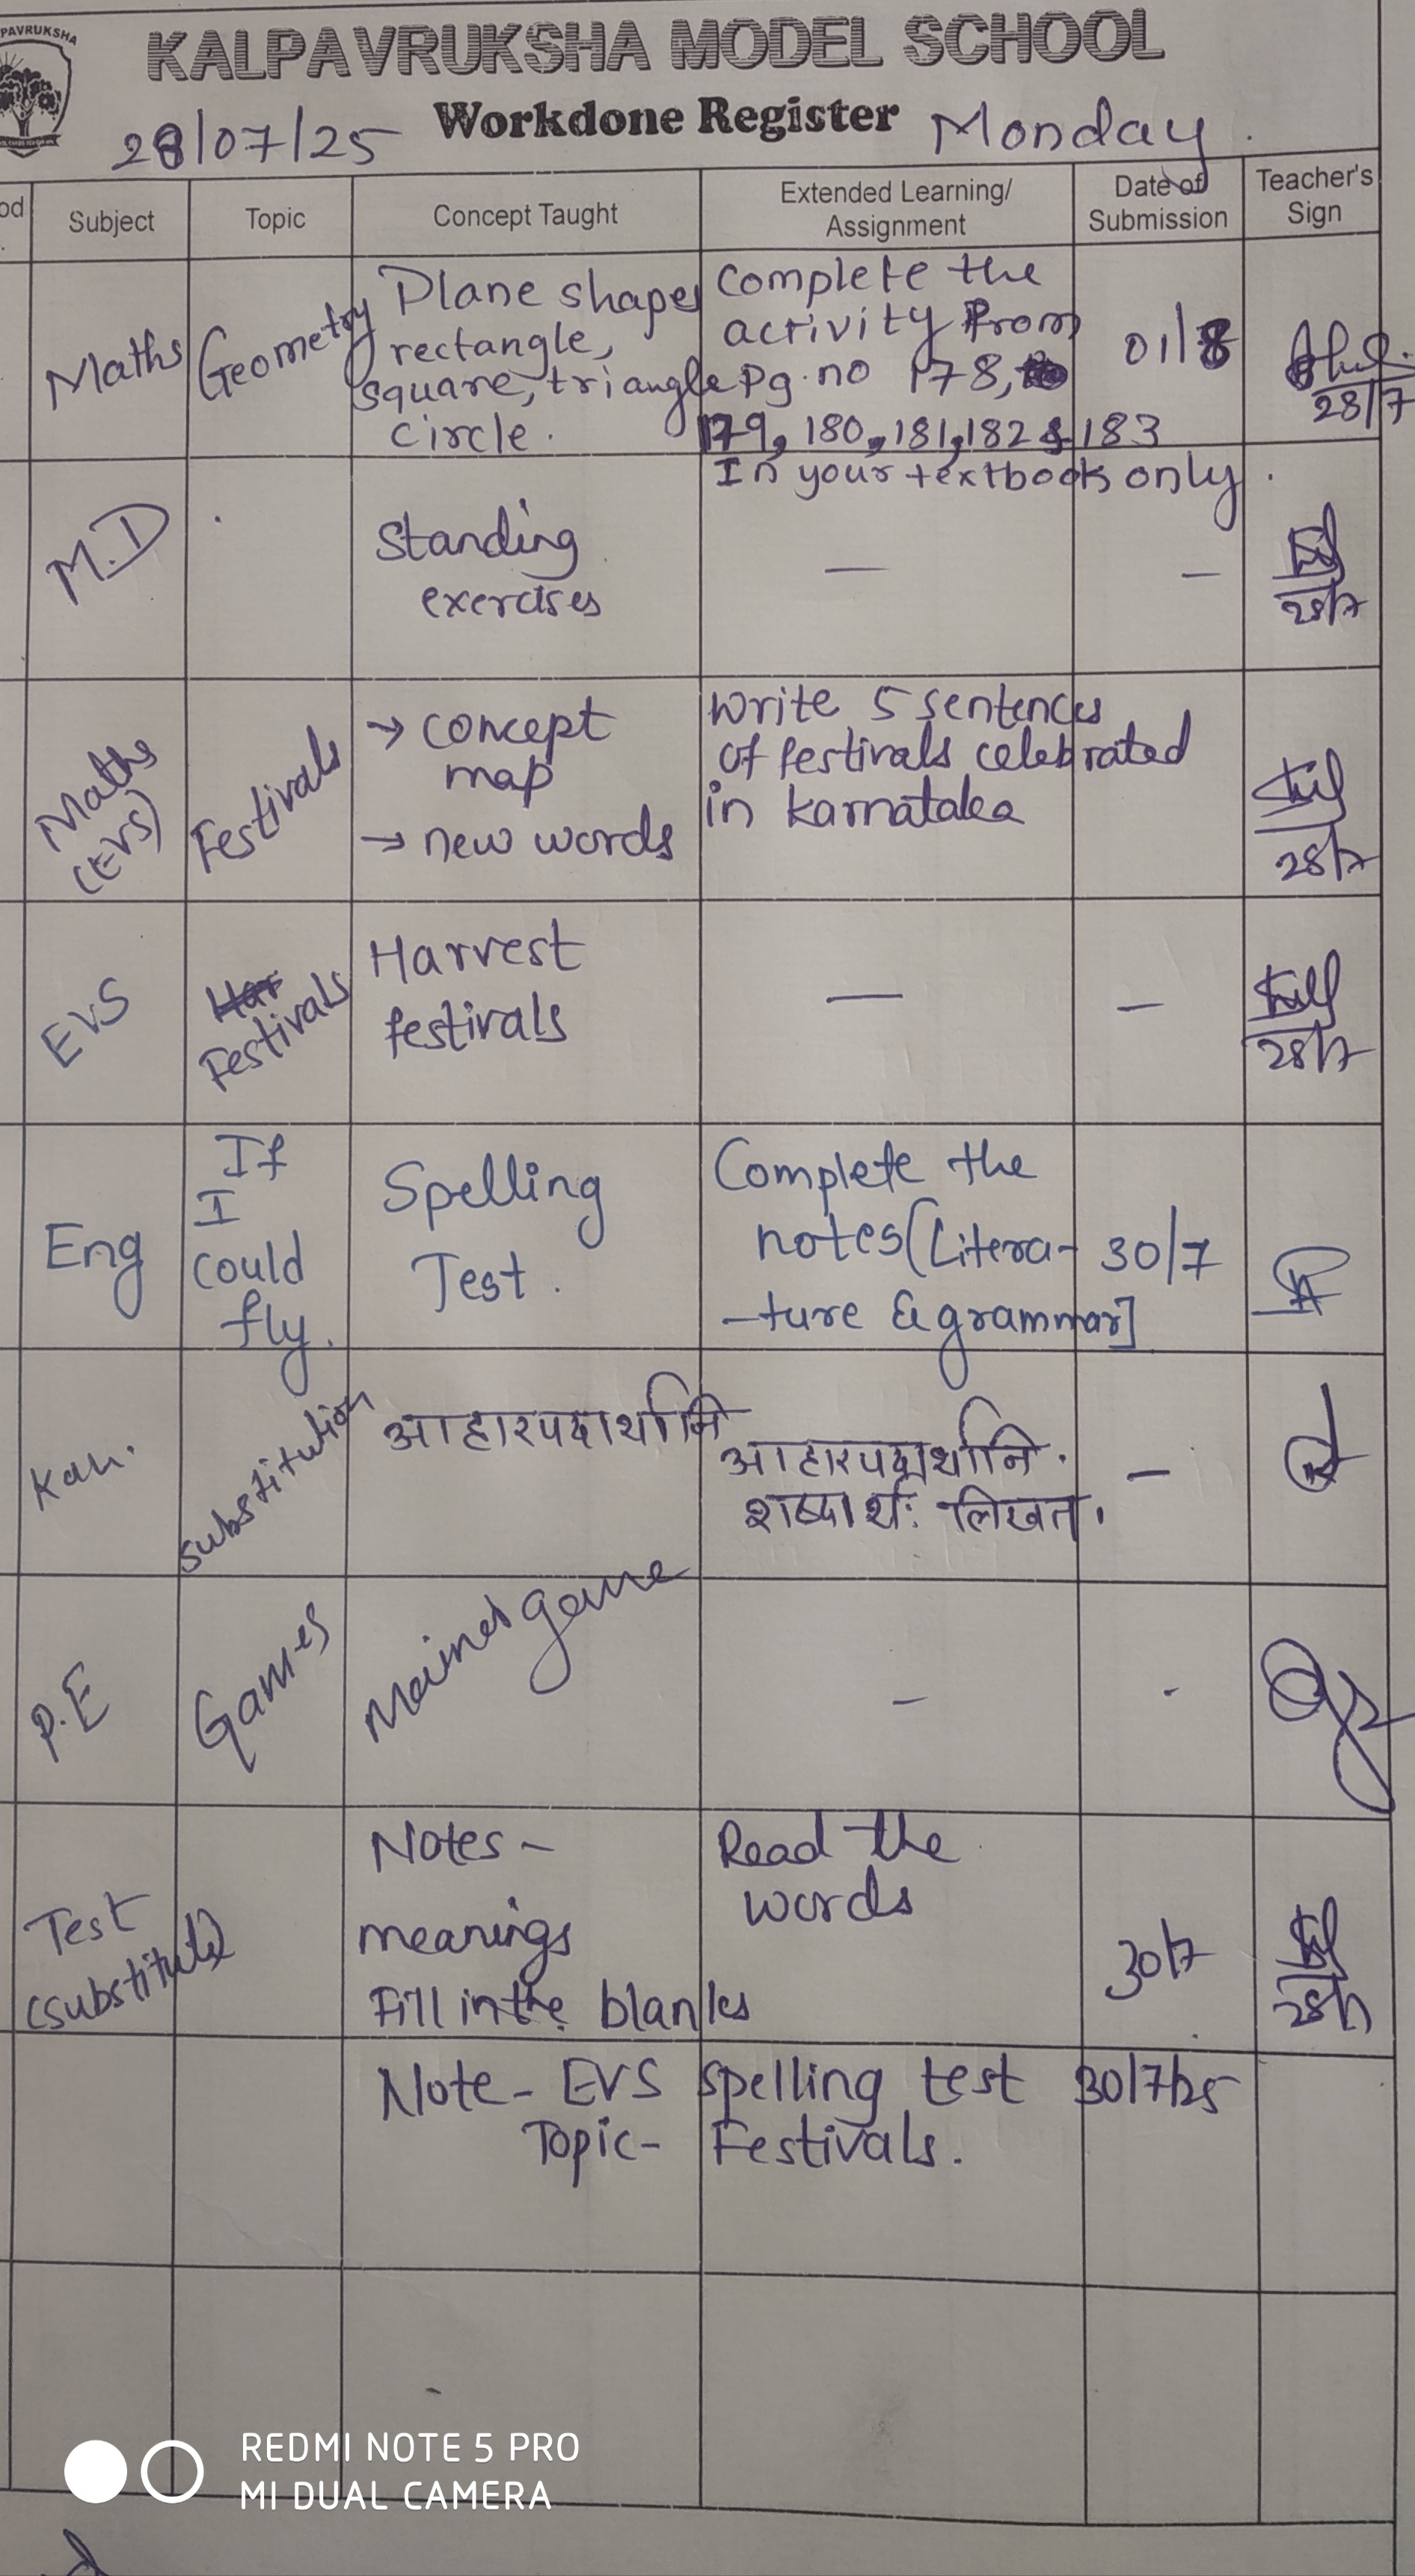 PAVRUKSHA
KALPAVRUKSHA MODEL SCHOOL
28/07/25 Workdone Register Monday.
od Subject Topic Concept Taught Extended Learning/ Assignment Date of Submission Teacher's Sign
Maths Geometry
Plane shapes
rectangle,
square, triangle
circle.
Complete the
activity from
Pg. no 178,
179, 180, 181, 182 & 183
In your textbook only.
01/8
28/7
M.D
Standing
exercises
—
—
28/7
Maths
(EVS)
Festivals
→ concept
map
→ new words
Write 5 sentences
of festivals celebrated
in karnataka
28/7
EVS
Festivals
Harvest
festivals
—
—
28/7
Eng
If
I
could
fly.
Spelling
Test.
Complete the
notes(Litera-
-ture & grammar]
30/7
Kan.
substitution
आहारपदार्थानि
आहारपदार्थानि.
शब्दार्थ: लिखत.
—
P.E
Games
game
-
-
Test
(substitute)
Notes -
meanings
Fill in the blanks
Read the
words
30/7
28/7
Note - EVS spelling test 30/7/25
Topic - Festivals.
REDMI NOTE 5 PRO
MI DUAL CAMERA